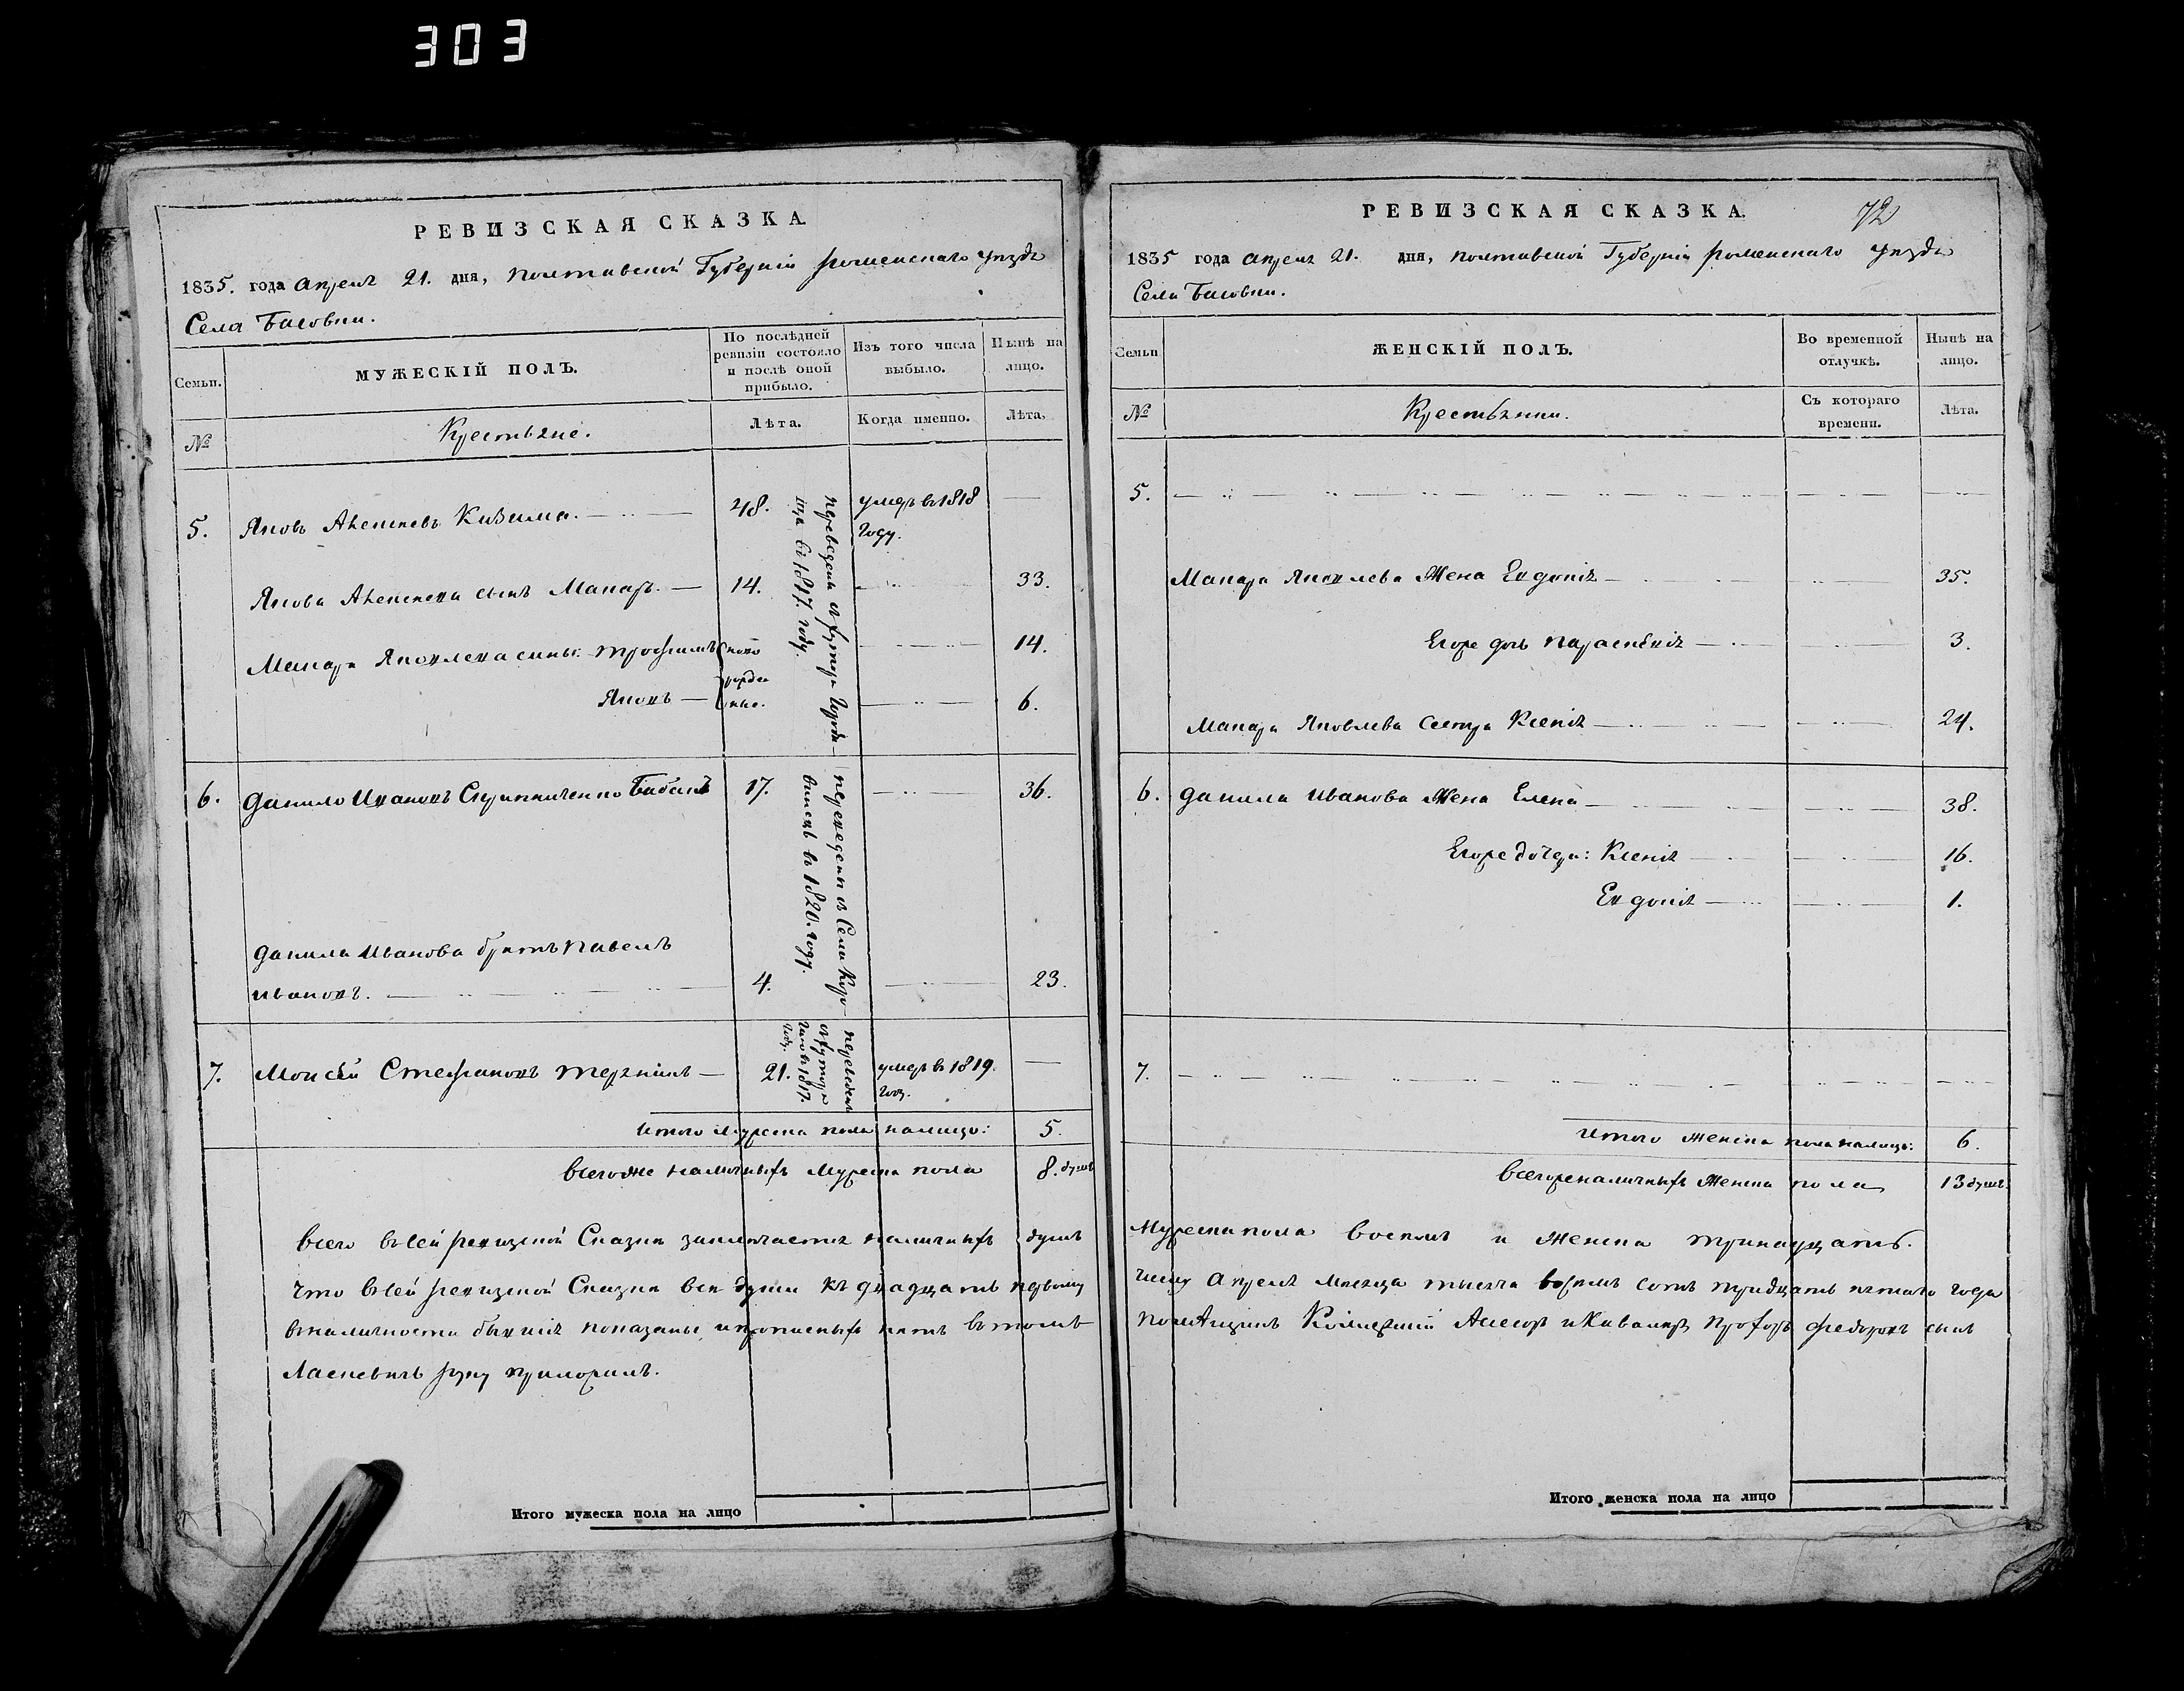 303
РЕВИЗСКАЯ СКАЗКА
1835. года Апреля 21. дня, Полтавской Губернии Роменскаго уезда
Села Басовки.
Семьи.
МУЖЕСКІЙ ПОЛЪ.
По послѣдней
ревизіи состояло
и послѣ оной
прибыло.
Изъ того числа
выбыло.
Нынѣ на
лицо.
№
Крестьяне.
Лѣта.
Когда именно.
Лѣта.
5.
Яковъ Кизима.
48.
умеръ в 1818
году.
Якова сынъ Макаръ.
14.
33.
Макара Яковлева сыны: Трофимъ
ново
14.
Яковъ
рожден
ные.
6.
переведены с хутора
в 1817. году.
6.
Данило Ивановъ Скрипниченко Бабакъ
17.
36.
Данила Иванова братъ Павелъ
Ивановъ.
4.
23.
переведены с Села
в 1820. году.
7.
Моисей Стефановъ
21.
умеръ в 1819.
году.
переведенъ
с хутора
в 1817.
году.
Итого мужеска пола налицо:
5.
Всего же наличныхъ мужеска пола
8. душъ
Всего в сей ревизской Сказки заключается наличныхъ душъ
Что в сей ревизской Сказки все души къ двадцать первому
в наличности бывшія показаны, и прописныхъ нетъ в томъ
Ласкевичъ руку приложилъ.
Итого мужеска пола на лицо
РЕВИЗСКАЯ СКАЗКА.
72
1835 года Апреля 21. дня, Полтавской Губернии Роменскаго уезда
Села Басовки.
Семьи
ЖЕНСКІЙ ПОЛЪ.
Во временной
отлучкѣ.
Нынѣ на
лицо.
№
Крестьянки.
Съ котораго
времени.
Лѣта.
5.
Макара Яковлева Жена Евдокія
35.
Егоже дочь Параскевія
3.
Макара Яковлева Сестра Ксенія
24.
6.
Данила Иванова Жена Елена
38.
Егоже дочери: Ксенія
16.
Евдокія
1.
7.
Итого женска пола налицо:
6.
Всего же наличныхъ Женска пола
13 душъ.
Мужеска пола восемь и Женска тринадцать.
числу Апреля Месяца тысяча восемь сотъ тридцать пятаго года
помещикъ Коллежскій Асесоръ и Кавалеръ Прохоръ Федоровъ сынъ
Итого женска пола на лицо